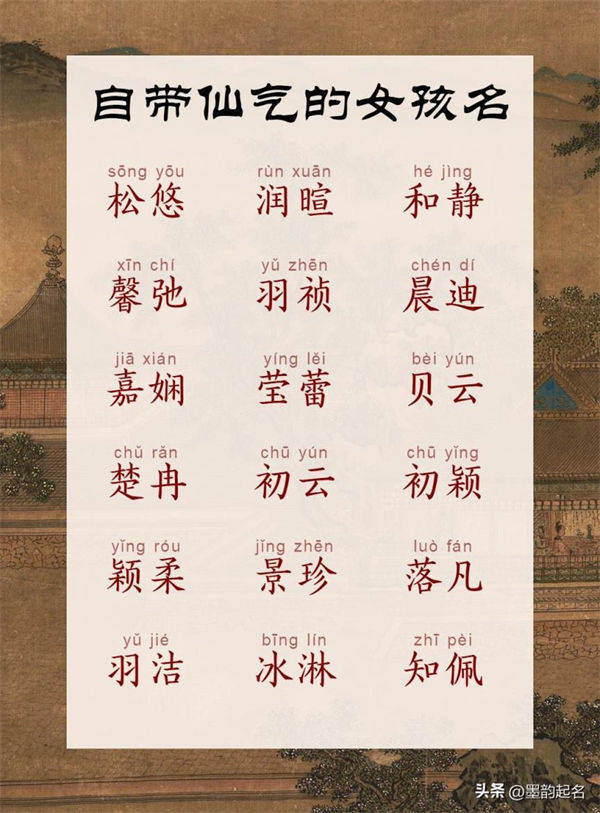 自带仙气的女孩名
sōng yōu rùn xuān hé jìng
松悠 润暄 和静
xīn chí yǔ zhēn chén dí
馨弛 羽祯 晨迪
jiā xián yíng lěi bèi yún
嘉娴 莹蕾 贝云
chǔ rǎn chū yún chū yǐng
楚冉 初云 初颖
yǐng róu jǐng zhēn luò fán
颖柔 景珍 落凡
yǔ jié bīng lín zhī pèi
羽洁 冰淋 知佩
头条 @墨韵起名